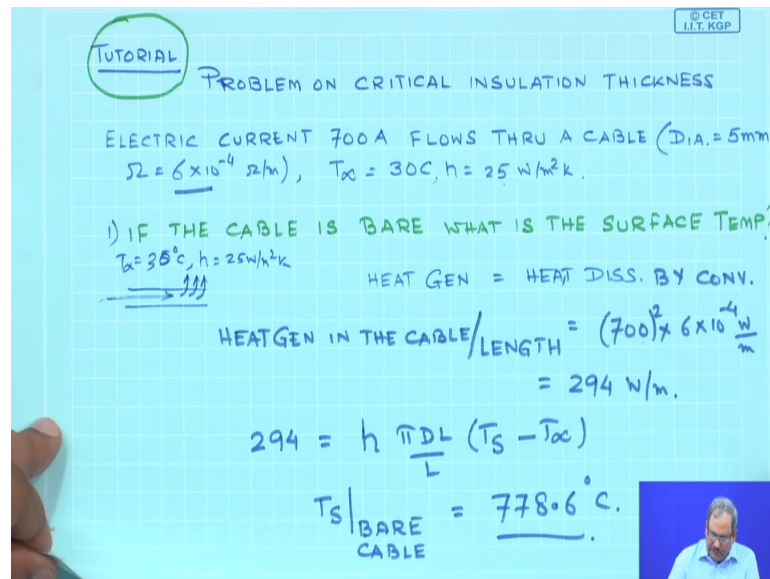 © CET
I.I.T. KGP
TUTORIAL
PROBLEM ON CRITICAL INSULATION THICKNESS
ELECTRIC CURRENT 700A FLOWS THRU A CABLE (DIA. = 5mm
Ω = 6×10⁻⁴ Ω/m), T∞ = 30C, h = 25 W/m²K.
1) IF THE CABLE IS BARE WHAT IS THE SURFACE TEMP?
T∞ = 30°C, h = 25W/m²K
HEAT GEN = HEAT DISS. BY CONV.
HEAT GEN IN THE CABLE/LENGTH = (700)² × 6×10⁻⁴ W/m
= 294 W/m.
294 = h πDL/L (Ts − T∞)
Ts|BARE CABLE = 778.6°C.